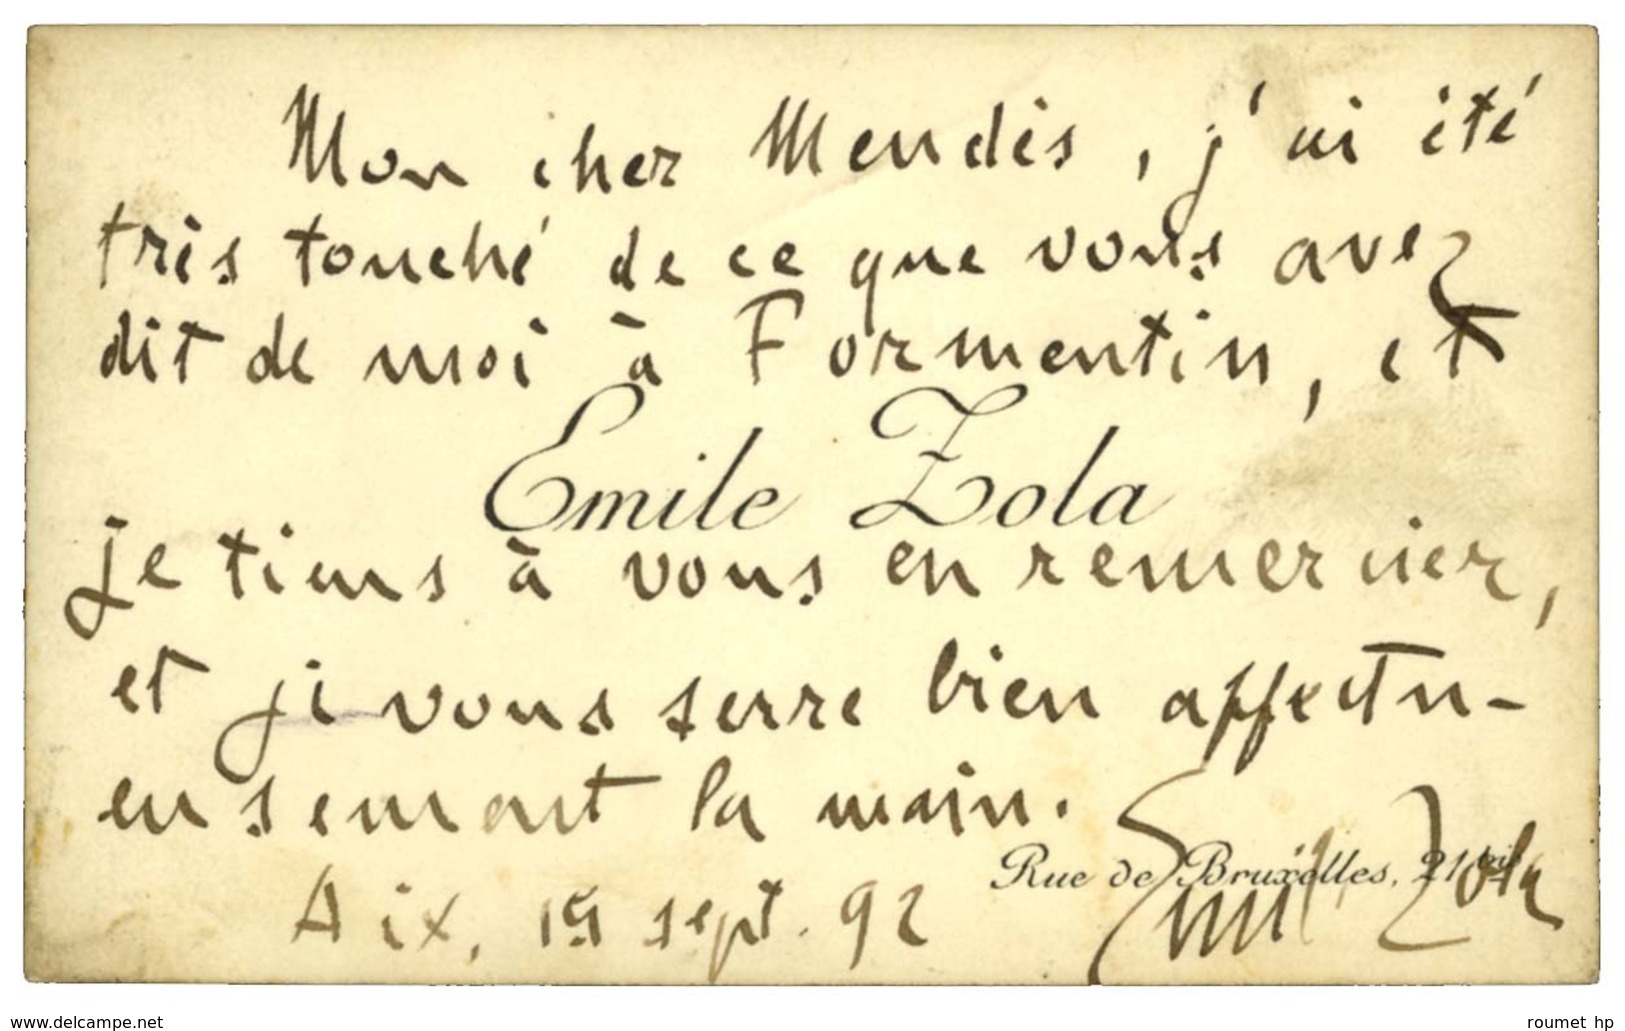 Mon cher Mendès, j'ai été
très touché de ce que vous avez
dit de moi à Formentin, et
Emile Zola
je tiens à vous en remercier,
et je vous serre bien affectu-
eusement la main.
Rue de Bruxelles, 21 bis
Emile Zola
Aix, 15 sept. 92
www.delcampe.net
roumet hp